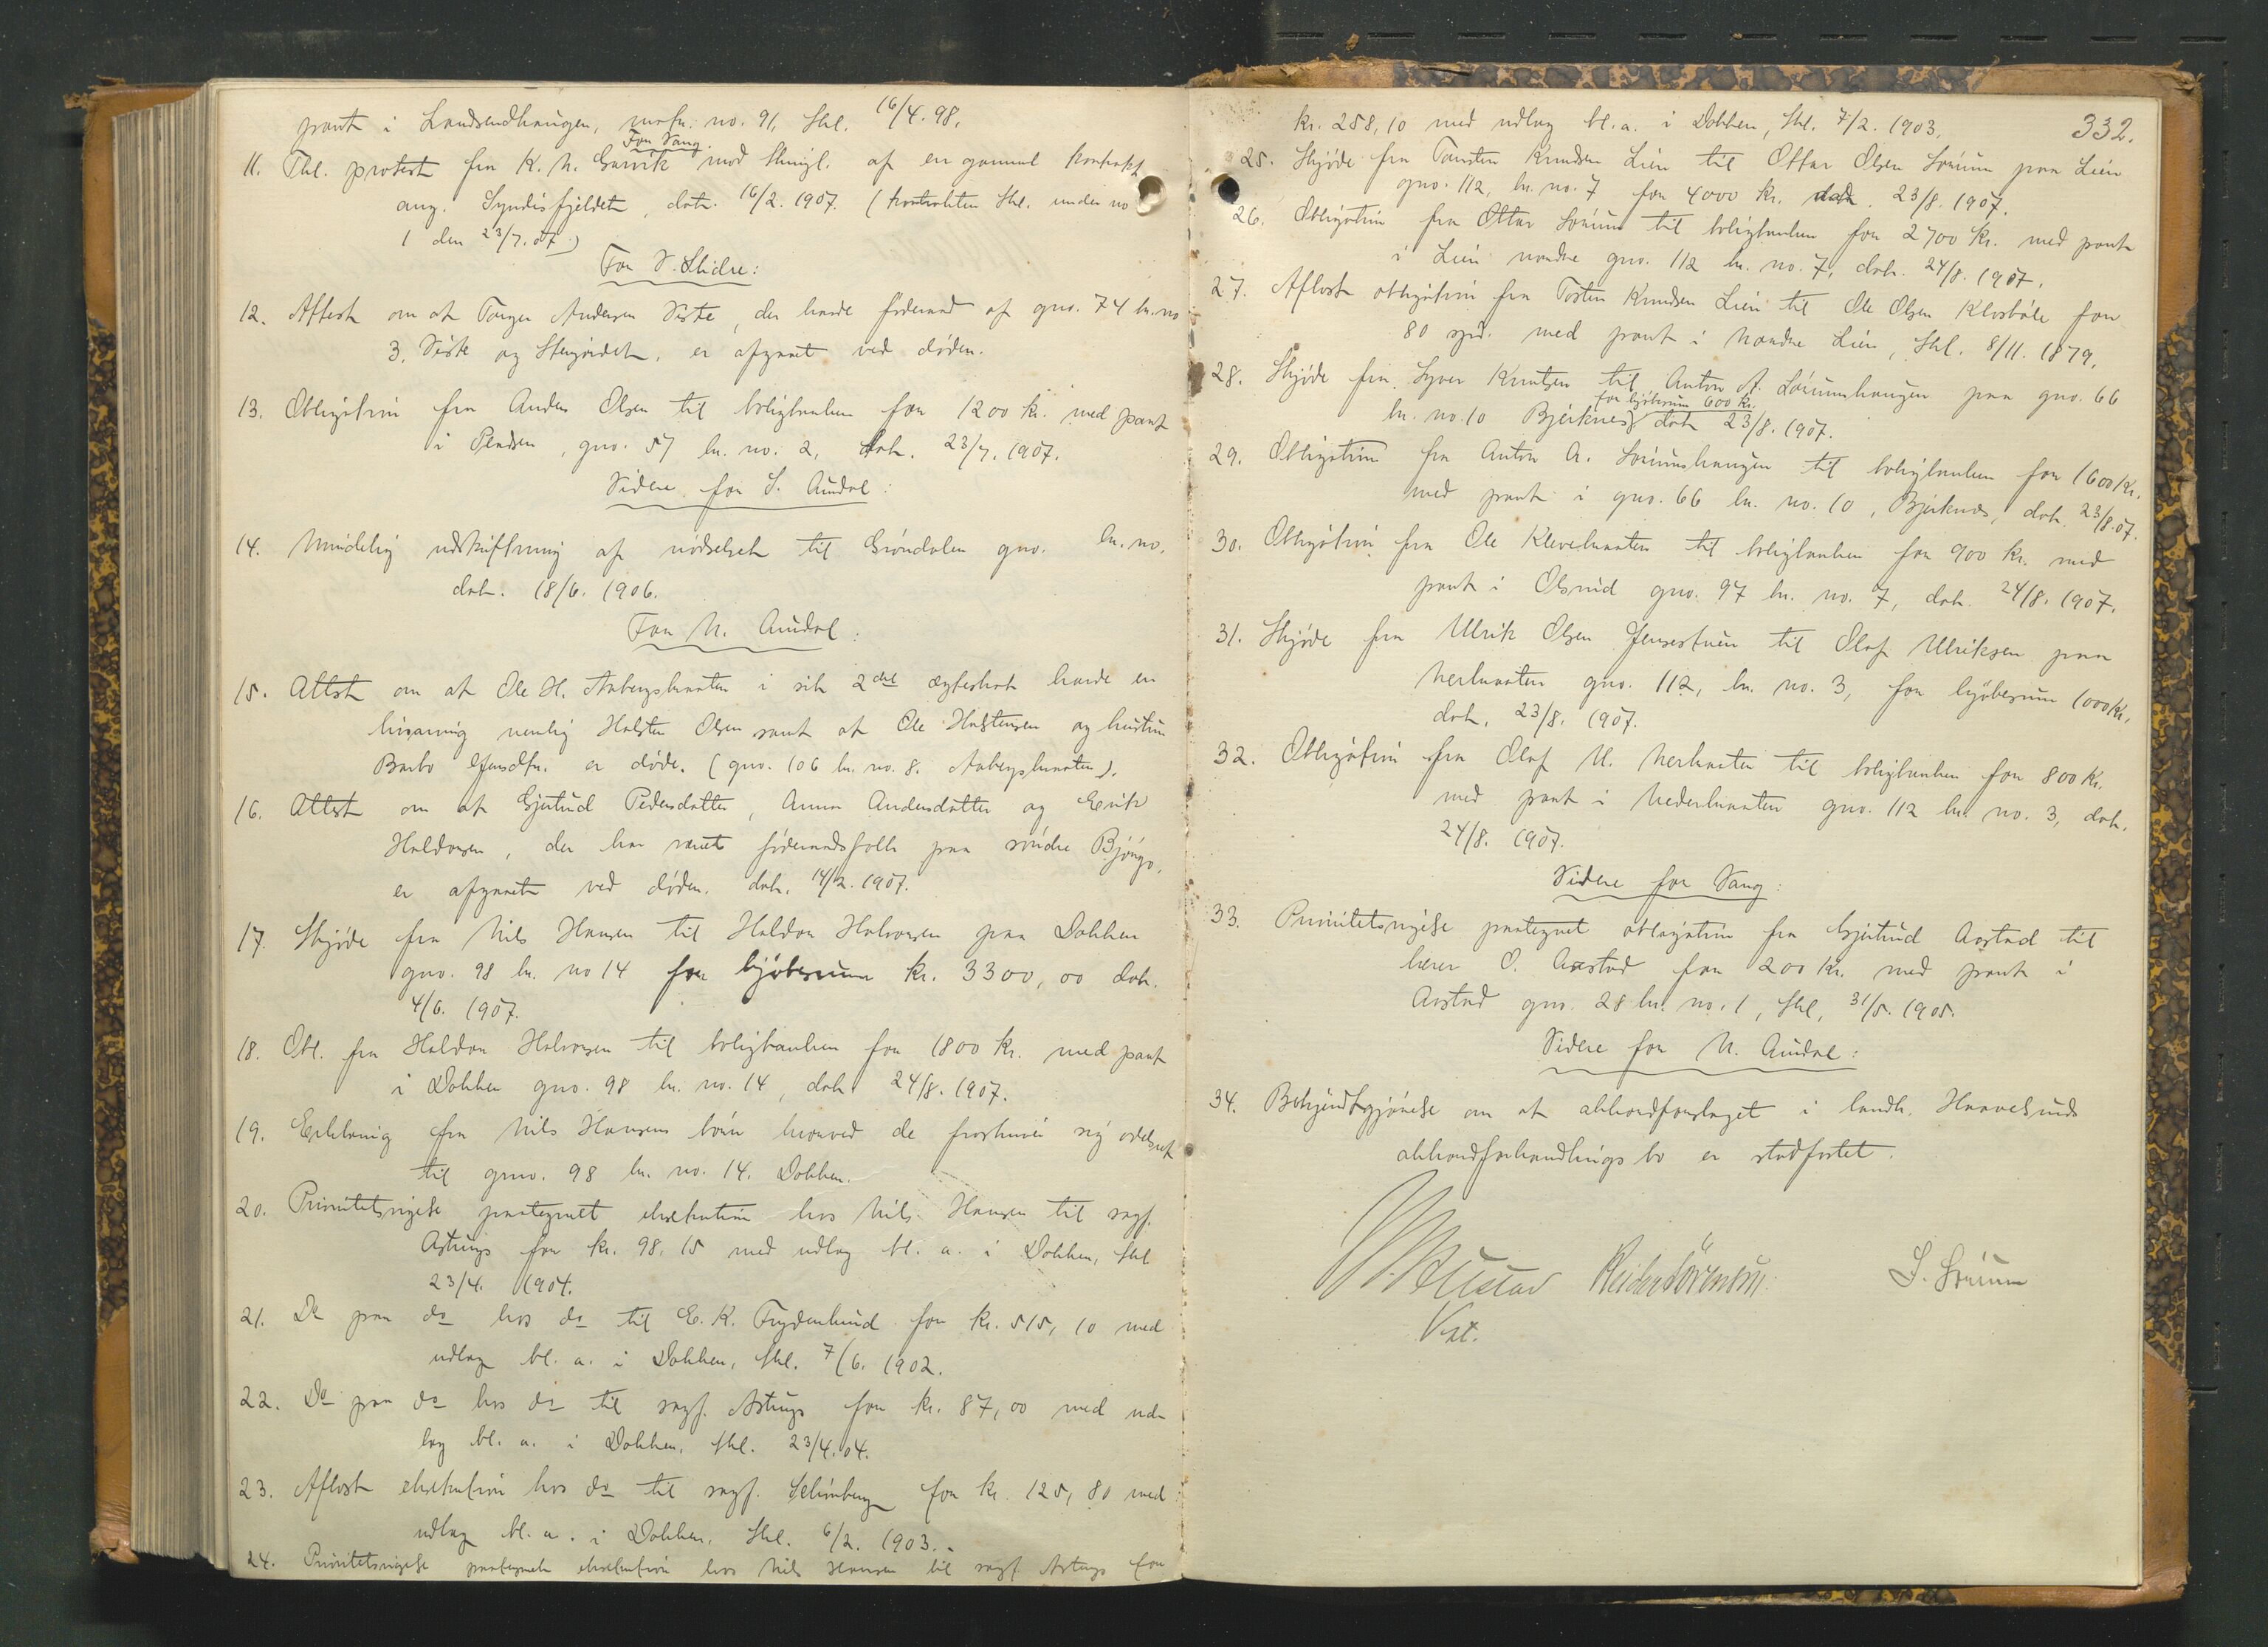 pant i Landsendhaugen, matr. no. 91, thl. 16/4. 98.
For Vang.
11. Thl. protest fra K. N. Garvik mod thingl. af en gammel kontrakt
ang. Syndisfjeldet, dat. 16/2. 1907. (kontrakten thl. under no
1 den 23/7. 07.)
For V. Slidre:
12. Attest om at Torger Andersen Viste, der havde föderaad af gno. 74 br. no
3, Viste og Stengårdet, er afgaaet ved döden.
13. Obligation fra Anders Olsen til boligbanken for 1200 kr. med pant
i Pladsen, gno. 57 br. no. 2, dat. 23/7. 1907.
Videre for S. Aurdal:
14. Mindelig udskiftning af nödselret til Gröndalen gno. br. no.
dat. 18/6. 1906.
For N. Aurdal:
15. Attest om at Ole H. Aabergsbraaten i sit 2det ægteskab havde en
livsarving nemlig Halsten Olsen samt at Ole Halstensen og hustru
Barbo Jensdtr. er döde. (gno. 106 br. no. 8. Aabergsbraaten).
16. Attest om at Gjertrud Pedersdatter, Anna Andersdatter og Erik
Haldorsen, der har været föderaadsfolk paa söndre Björgo,
er afgaaet ved döden. dat. 14/2. 1907.
17. Skjöde fra Nils Hansen til Haldor Halvorsen paa Dokken
gno. 98 br. no 14 for kjöbesum kr. 3300,00 dat.
4/6. 1907.
18. Obl. fra Haldor Halvorsen til boligbanken for 1800 kr. med pant
i Dokken gno. 98 br. no. 14, dat. 24/8. 1907.
19. Erklæring fra Nils Hansens börn hvorved de fraskriver sig odelsret
til gno. 98 br. no. 14. Dokken.
20. Prioritetsvigelse paategnet eksekution hos Nils Hansen til sagf.
Astrup for kr. 98,15 med udlæg bl. a. i Dokken, thl
23/4. 1904.
21. Do paa do hos do til E. K. Frydenlund for kr. 515,10 med
udlæg bl. a. i Dokken, thl. 7/6. 1902.
22. Do paa do hos do til sagf. Astrup for kr. 87,00 med ud-
læg bl. a. i Dokken, thl. 23/4. 04.
23. Aflöst eksekution hos do til sagf. Schönberg for kr. 125,80 med
udlæg bl. a. i Dokken, thl. 6/2. 1903.
24. Prioritetsvigelse paategnet eksekution hos Nils Hansen til sagf Astrup for
332.
kr. 258,10 med udlæg bl. a. i Dokken, thl. 7/2. 1903.
25. Skjöde fra Torsten Knudsen Lien til Ottar Olsen Lörum paa Lien
gno. 112, br. no. 7 for 4000 kr. dat. 23/8. 1907.
26. Obligation fra Ottar Lörum til boligbanken for 2700 kr. med pant
i Lien nordre gno. 112 br. no. 7, dat. 24/8. 1907.
27. Aflöst obligation fra Tosten Knudsen Lien til Ole Olsen Klosböle for
80 spd. med pant i nordre Lien, thl. 8/11. 1879.
28. Skjöde fra Syver Knutsen til Anton A. Lörumshaugen paa gno. 66
for kjöbesum 600 kr.
br. no. 10 Bjerknes, dat 23/8. 1907.
29. Obligation fra Anton A. Lörumshaugen til boligbanken for 1600 kr.
med pant i gno. 66 br. no. 10, Bjerknes, dat. 23/8. 07.
30. Obligation fra Ole Klevebraaten til boligbanken for 900 kr. med
pant i Olsrud gno. 97 br. no. 7, dat. 24/8. 1907.
31. Skjöde fra Ulrik Olsen Jensestuen til Olaf Ulriksen paa
Nerbraaten gno. 112, br. no. 3, for kjöbesum 1000 kr.
dat. 23/8. 1907.
32. Obligation fra Olaf U. Nerbraaten til boligbanken for 800 kr.
med pant i Nederbraaten gno. 112 br. no. 3, dat.
24/8. 1907.
Videre for Vang:
33. Prioritetsvigelse paategnet obligation fra Gjertrud Aastad til
lærer O. Aastad for 200 kr. med pant i
Aastad gno. 28 br. no. 1, thl. 31/5. 1905.
Videre for N. Aurdal:
34. Bekjendtgjörelse om at akkordforslaget i landh. Haavelsruds
akkordforhandlings bo er stadfæstet.
Reidar Sörensen.
S. Lörum
Vst.